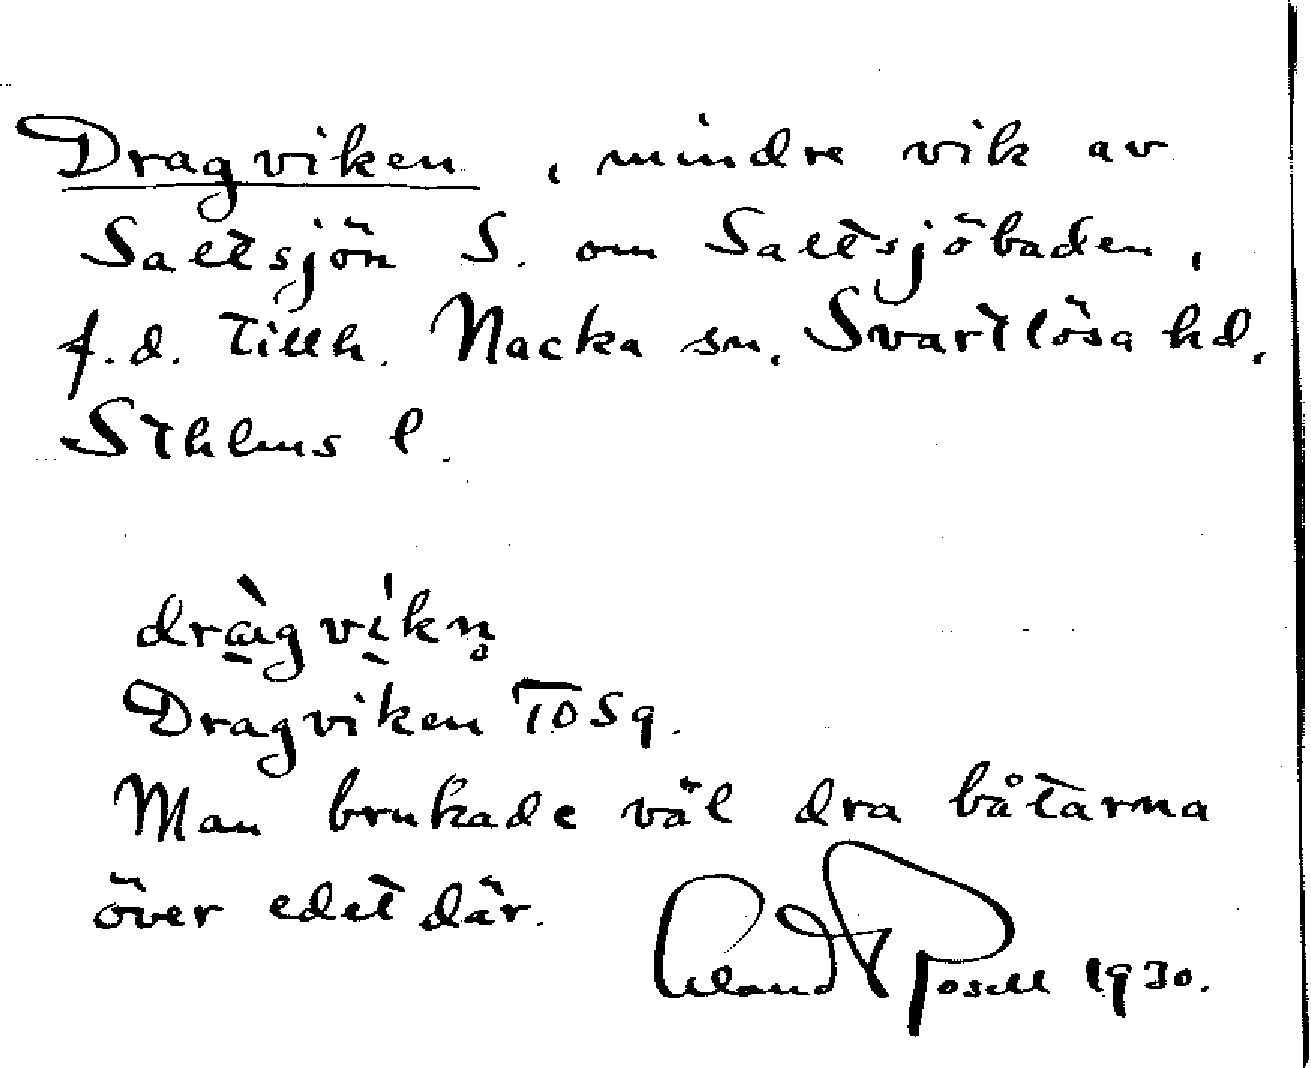 Dragviken, mindre vik av
Saltsjön S. om Saltsjöbaden,
f.d. tillh. Nacka sn, Svartlösa hd,
Sthlms l.
dràgvíkn̥
Dragviken
Man brukade väl dra båtarna
över edet där.
1930.